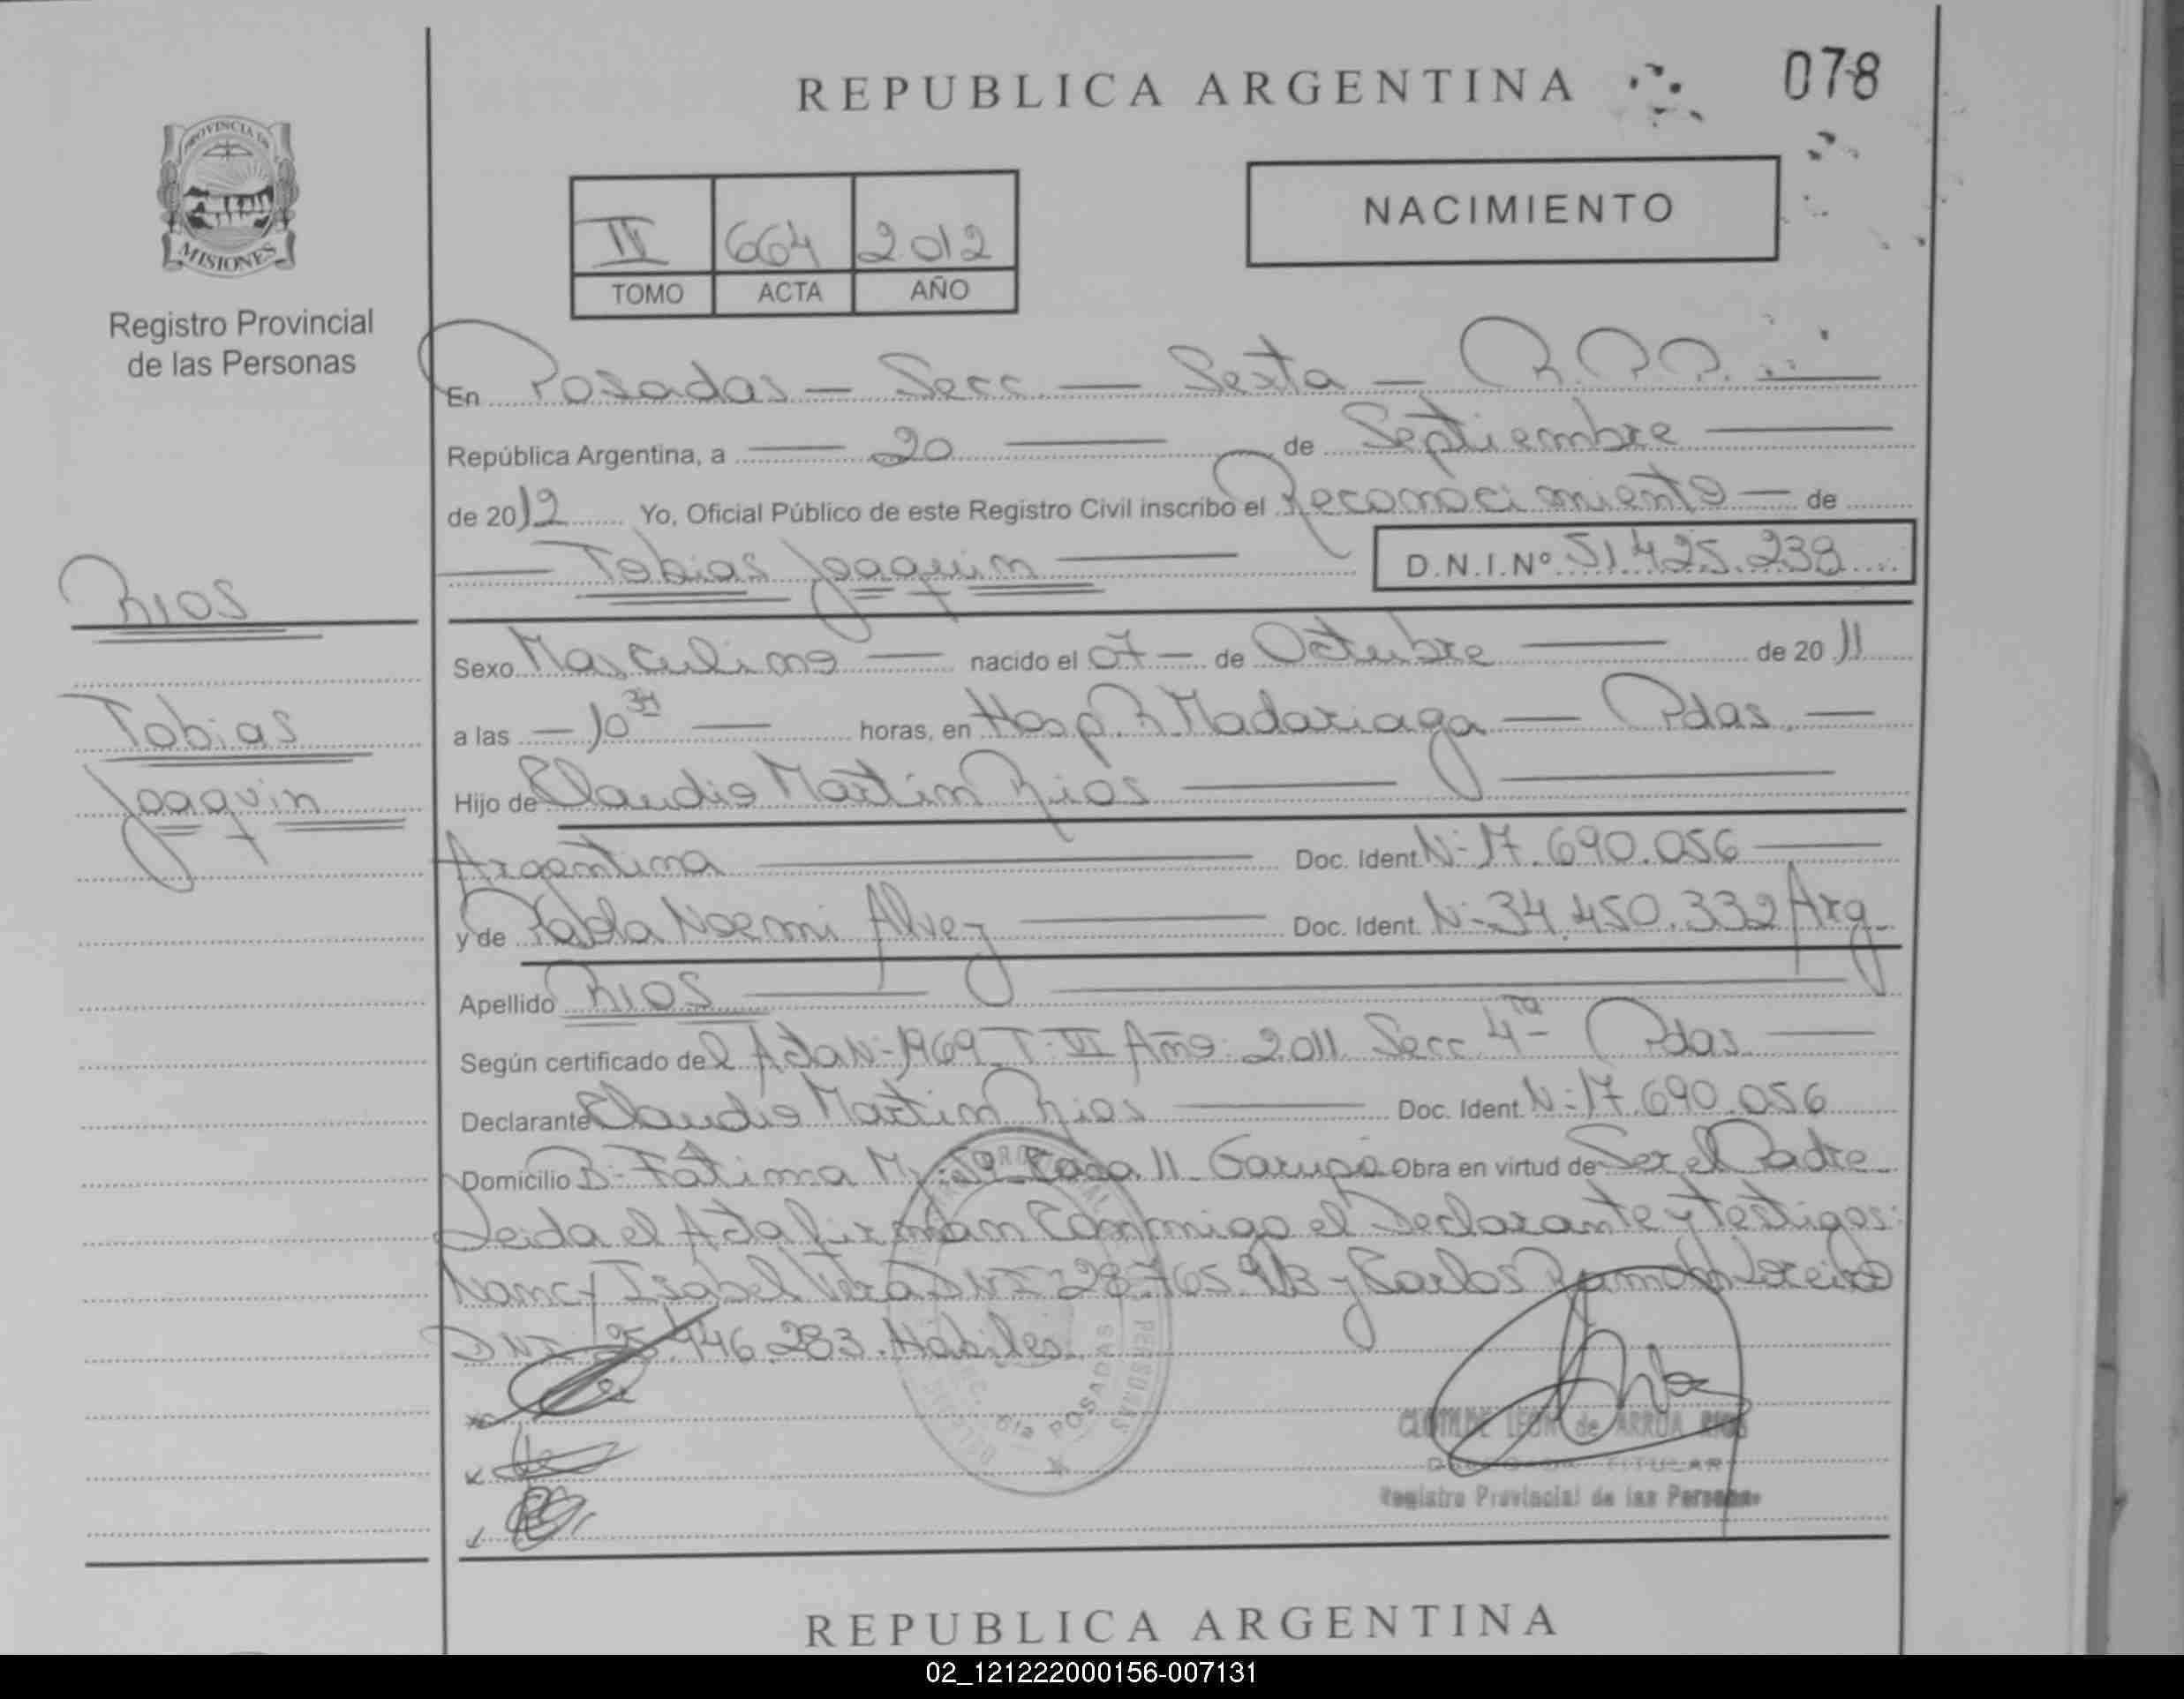 REPUBLICA ARGENTINA
078
PROVINCIA DE
MISIONES
Registro Provincial
de las Personas
NACIMIENTO
IV 664 2012
TOMO ACTA AÑO
En Posadas - Secc - Sexta - R.P.P.
República Argentina, a 20 de Septiembre
de 2012 Yo, Oficial Público de este Registro Civil inscribo el Reconocimiento de
Tobias Joaquin D.N.I.Nº 51.425.238
RIOS
Tobias
Joaquin
Sexo Masculino nacido el 07 de Octubre de 2011
a las 10 34 horas, en Hosp. R. Madariaga - Pdas.
Hijo de Claudio Martin Rios
Argentina Doc. Ident. N: 17.690.056
y de Noemi Alvez Doc. Ident. N: 34.450.332 Arg
Apellido RIOS
Según certificado del Acta N: 1969 T: VI Año: 2011 Secc. 4ta Pdas
Declarante Claudio Martin Rios Doc. Ident. N: 17.690.056
Domicilio B: Fátima Casa 11 - Garupá Obra en virtud de Ser el Padre
Leida el Acta firman Conmigo el Declarante y Testigos:
Nancy Isabel Vera DNI 28.765. y Carlos Ramon
DNI .446.283. Hábiles.
POSADAS
PERSONAS
CLOTILDE LEON de ARRUA RIOS
DELEGADA TITULAR
Registro Provincial de las Personas
REPUBLICA ARGENTINA
02_121222000156-007131